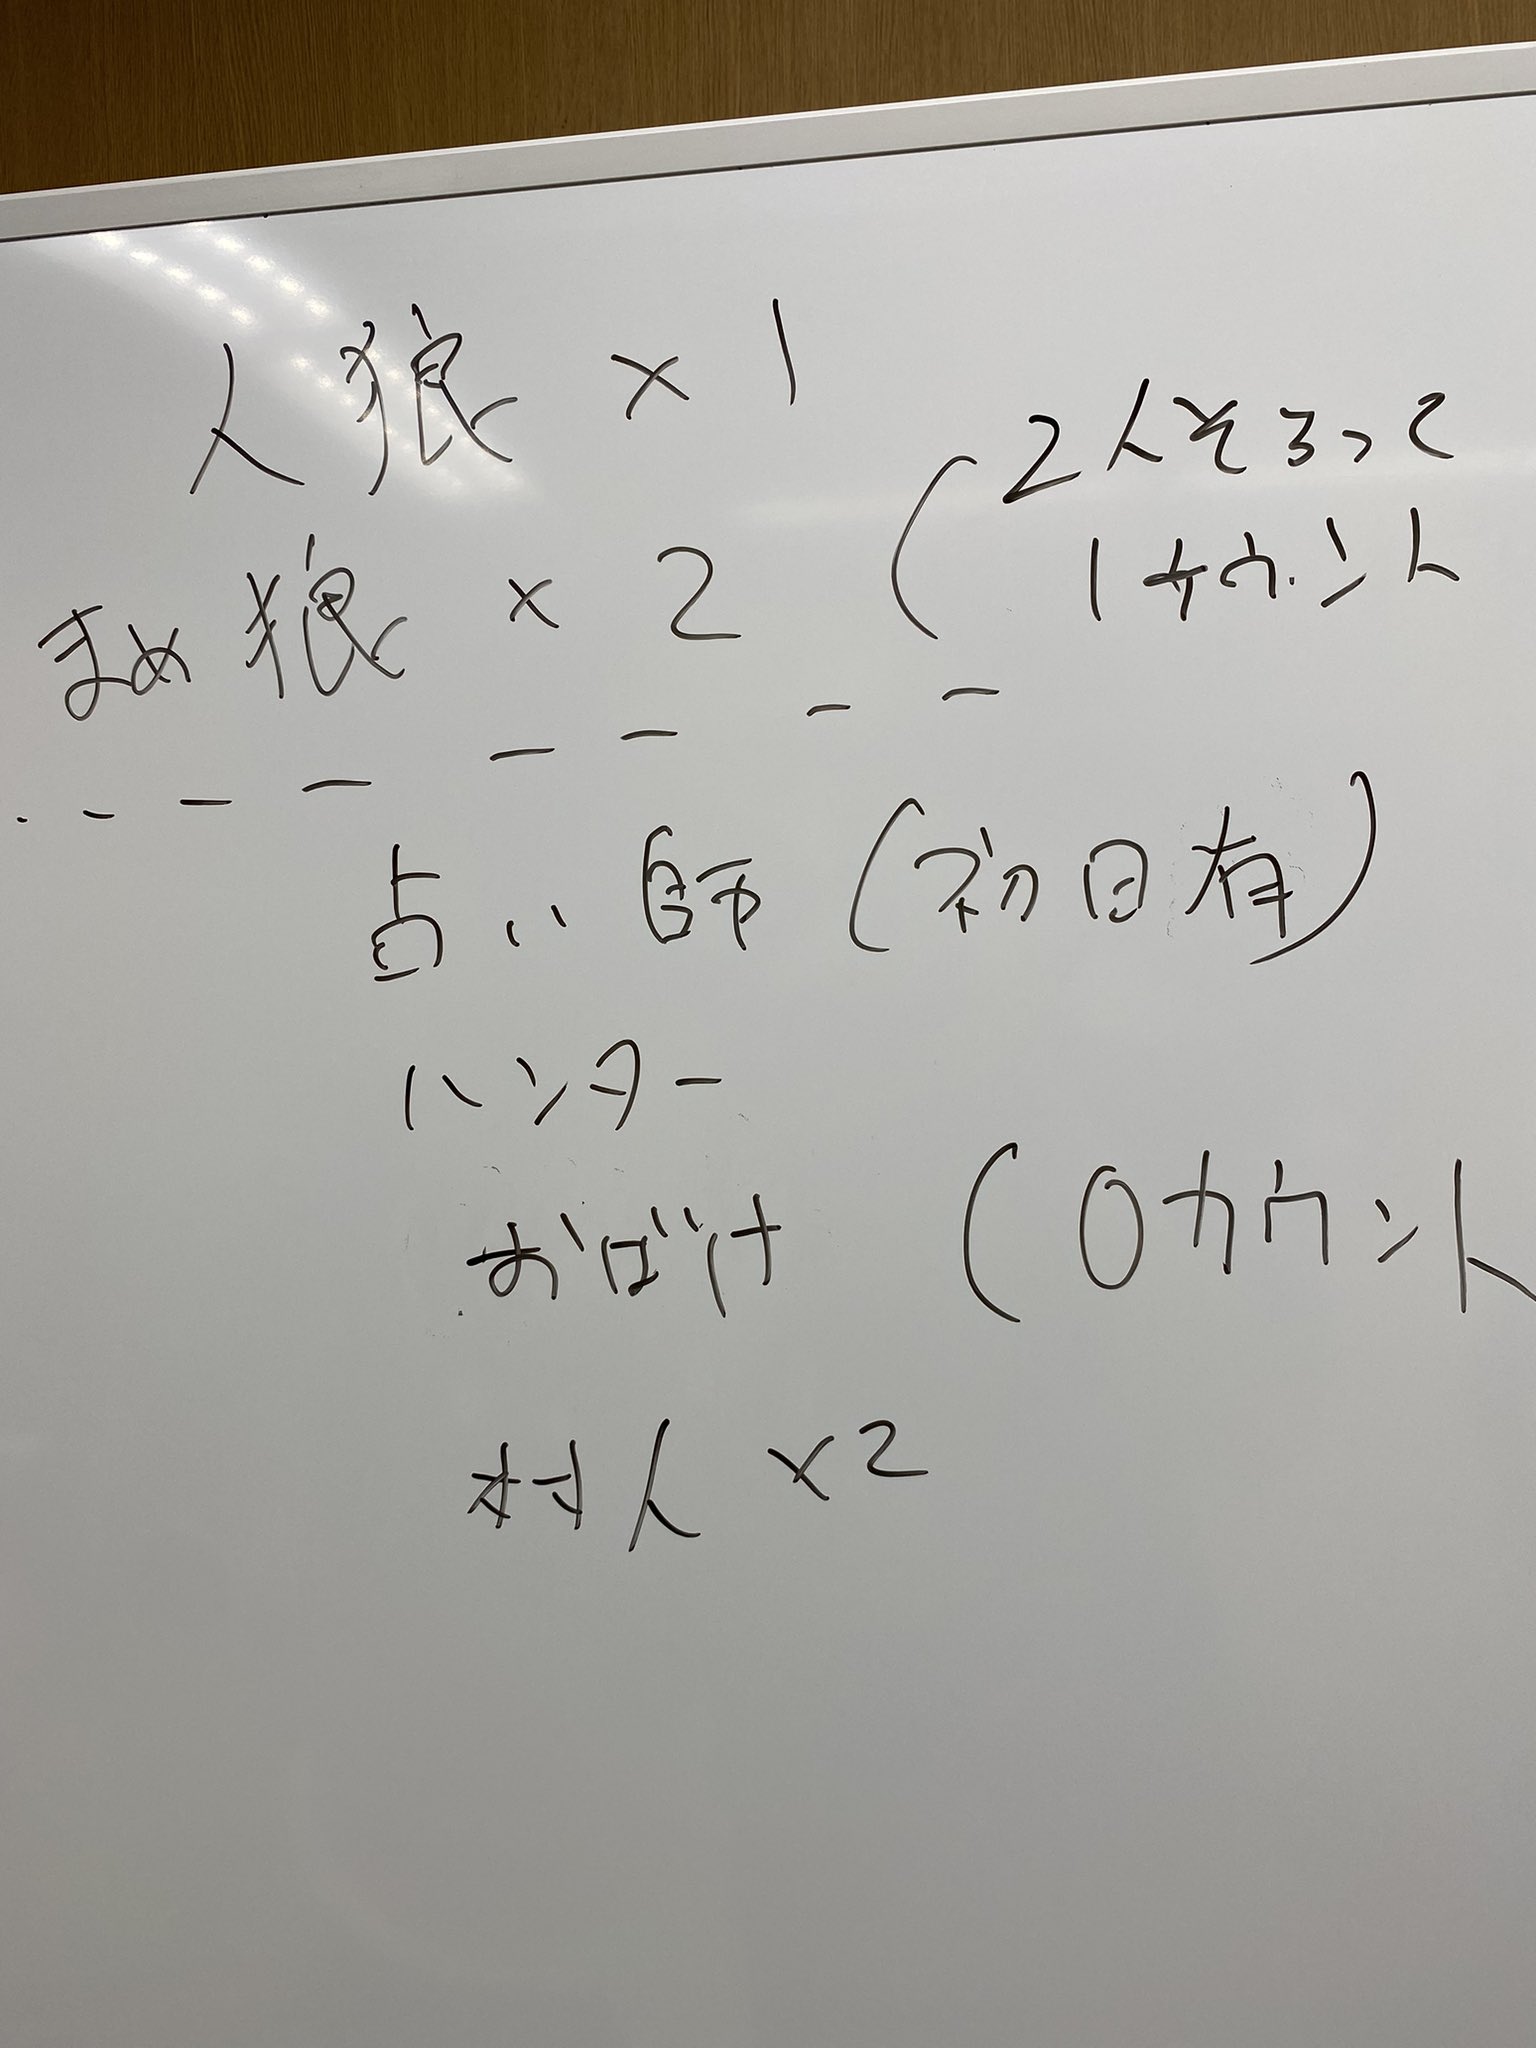 人狼 × 1
まめ狼 × 2 (2人そろって
1カウント
占い師 (初日有)
ハンター
おばけ (0カウント
村人 ×2